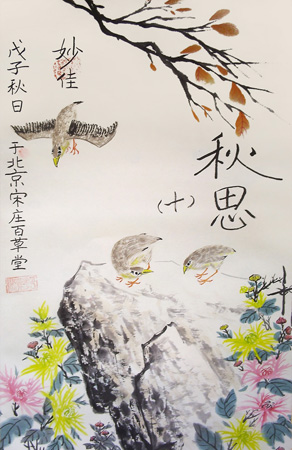 秋思
（十）
妙佳
戊子秋日
于北京宋庄百草堂